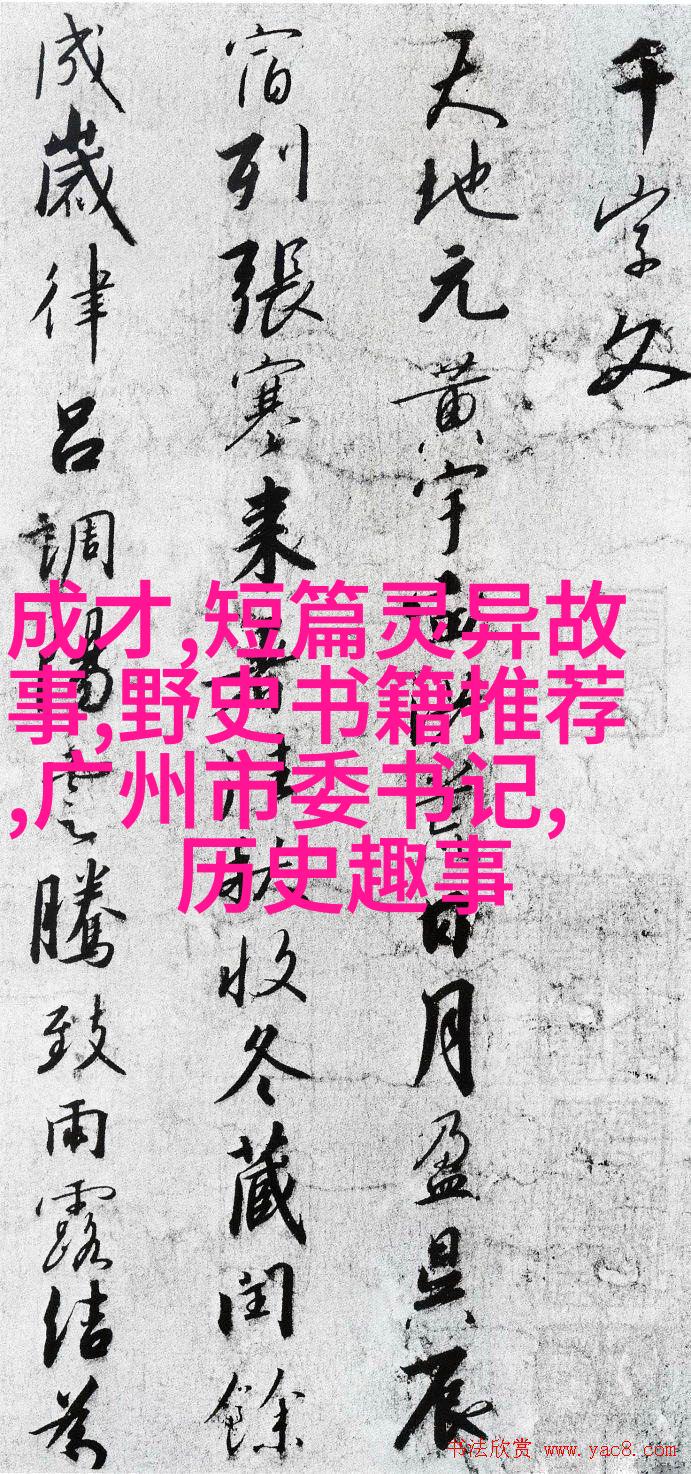 千字文
天地元黃宇宙洪荒日月盈昃辰
宿列張寒来暑往秋收冬藏閏餘
成歲律呂調陽雲騰致雨露結為
成才,短篇灵异故
事,野史书籍推荐
,广州市委书记,
历史趣事
书法欣赏 www.yac8.com